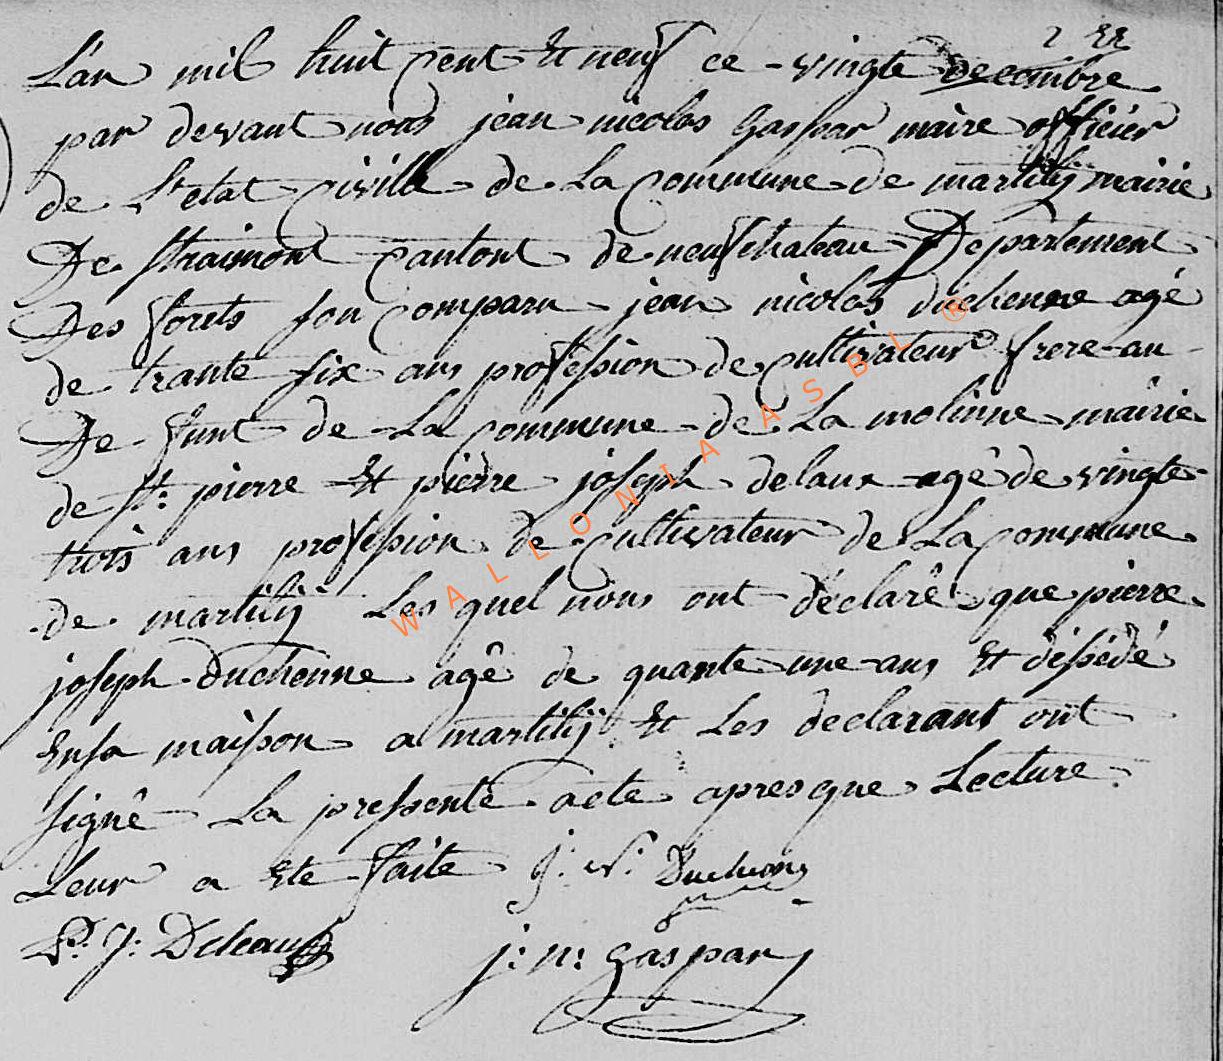 L'an mil huit cent Et neuf ce vingte decembre
par devant nous jean nicolas Gaspar maire officiér
de L'etat civille de La Commune de martilij mairie
De straimont cantont de neufchateau Departement
Des forets son comparu jean nicolas duchenne agé
de trante six ans profession de cultivateur frere au
De funt de La commune de La molinne mairie
de St: pierre Et pierre joseph delaux agé de vingte
trois ans profession de cultivateur de La commune
de martilij Les quel nous ont déclaré que pierre
joseph Duchenne agé de quante une ans Et déssédé
Ensa maison a martilij Et Les declarant ont
signé La pressente acte apres que Lecture
Leur a Ete faite j: N: Duchene
P: J: Deleau
j: n: gaspar
WALLONIA ASBL ®